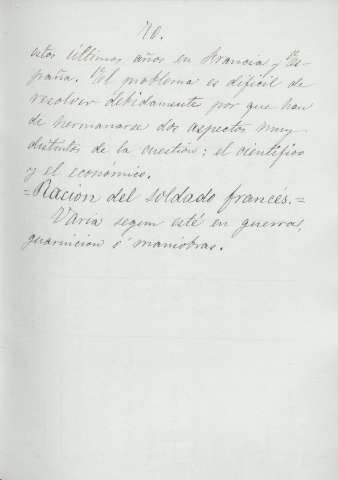 70.
estos últimos años en Francia y Es-
paña. El problema es dificil de
resolver debidamente por que han
de hermanarse dos aspectos muy
distintos de la cuestión: el científico
y el económico.
=Ración del soldado francés.=
Varia segun esté en guerra,
guarnicion ó maniobras.